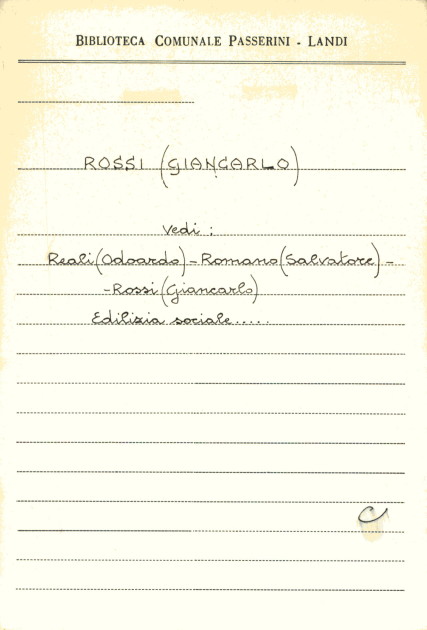 BIBLIOTECA COMUNALE PASSERINI - LANDI
ROSSI (GIANCARLO)
Vedi :
Reali (Odoardo) - Romano (Salvatore) -
- Rossi (Giancarlo)
Edilizia sociale.....
C